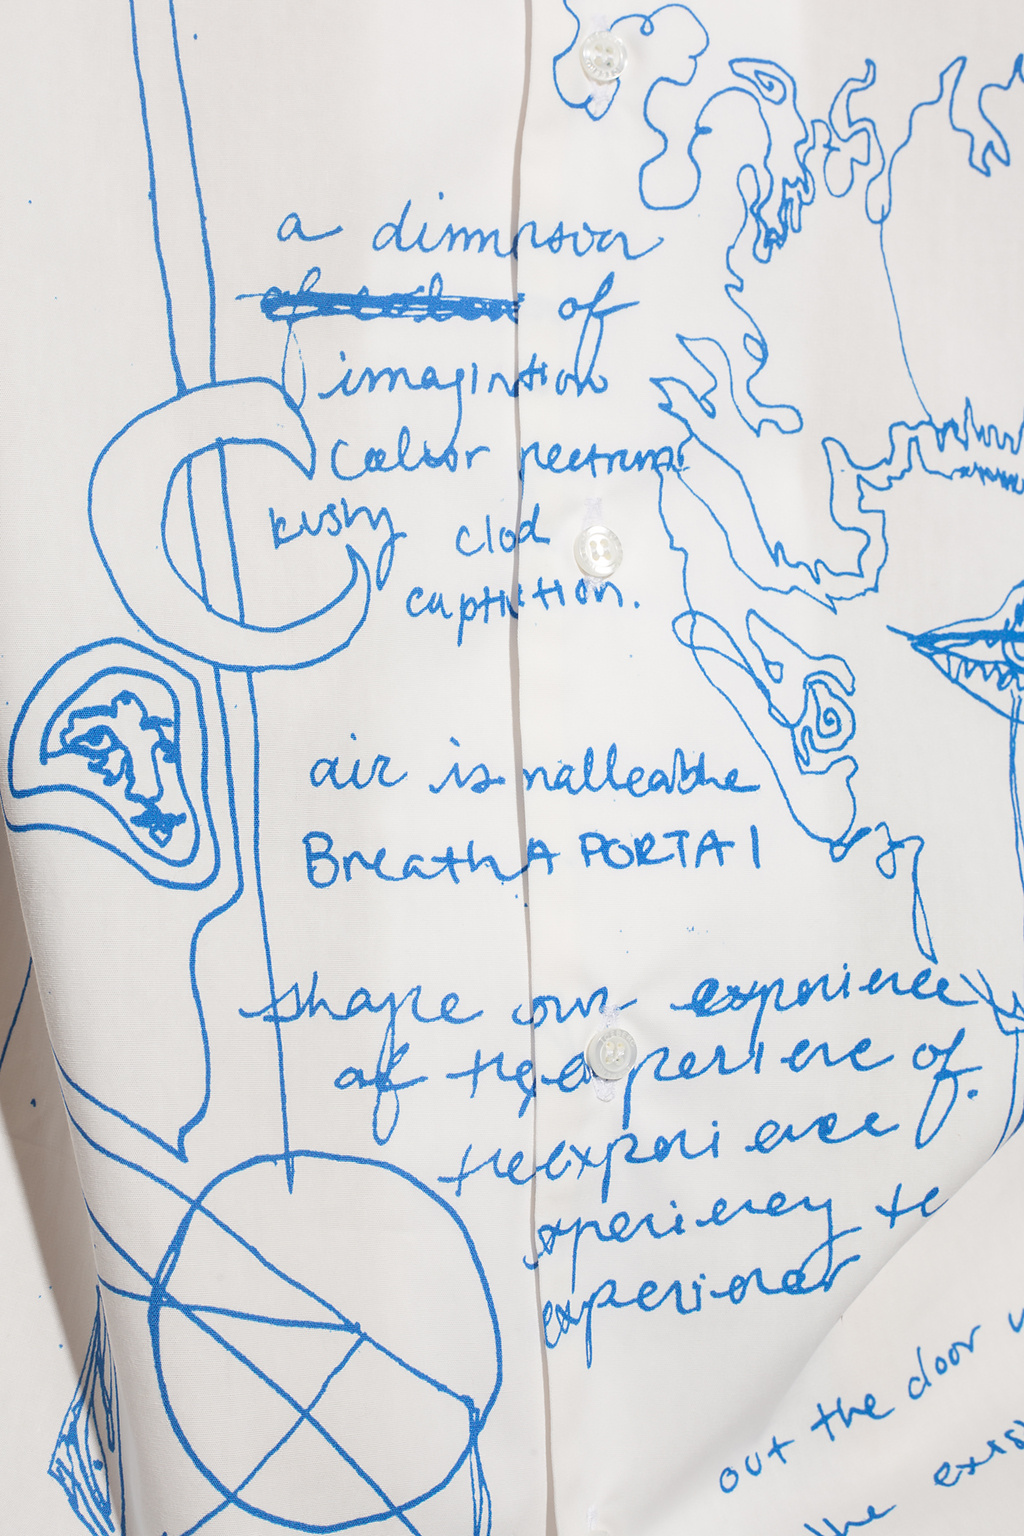 a dimnsion
of
imagintion
Coelor
kushy clod
captivtion.
air is malleable
Breath A PORTAl
shape our experience
of the experience of
the experience
experiency te
experiencer
out the door
the